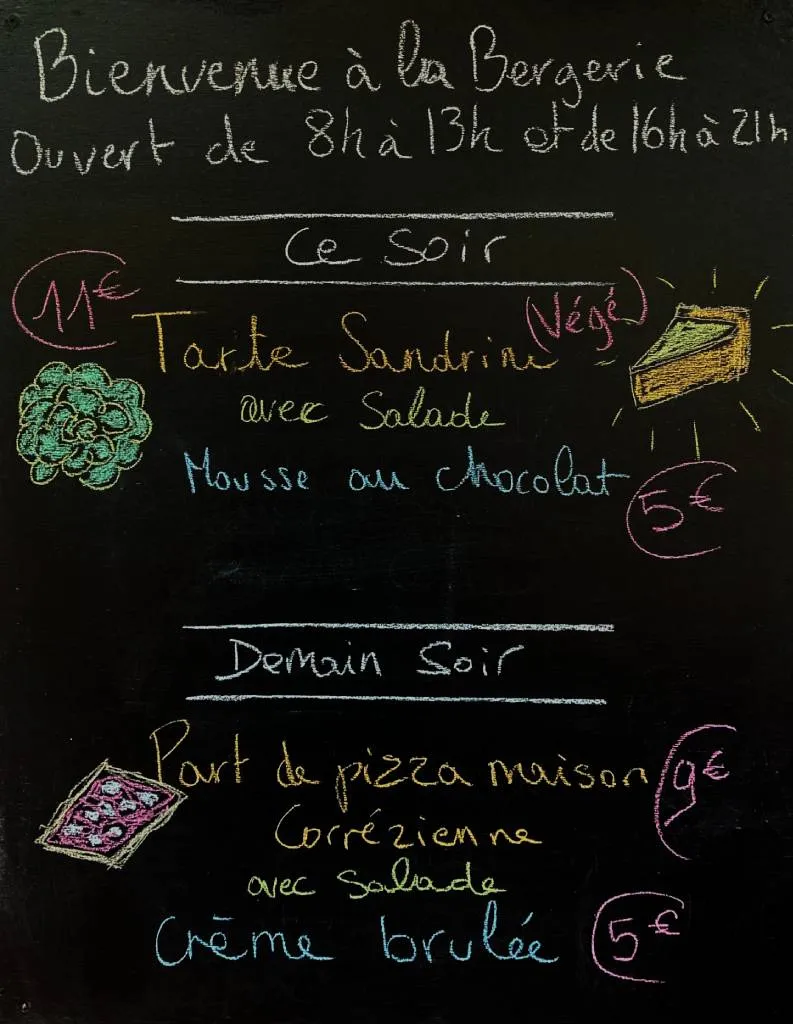 Bienvenue à la Bergerie
Ouvert de 8h à 13h et de 16h à 21h
Ce Soir
11€
(Végé)
Tarte Sandrine
avec Salade
Mousse au chocolat
5€
Demain Soir
Part de pizza maison
9€
Corrézienne
avec Salade
Crème brulée 5€